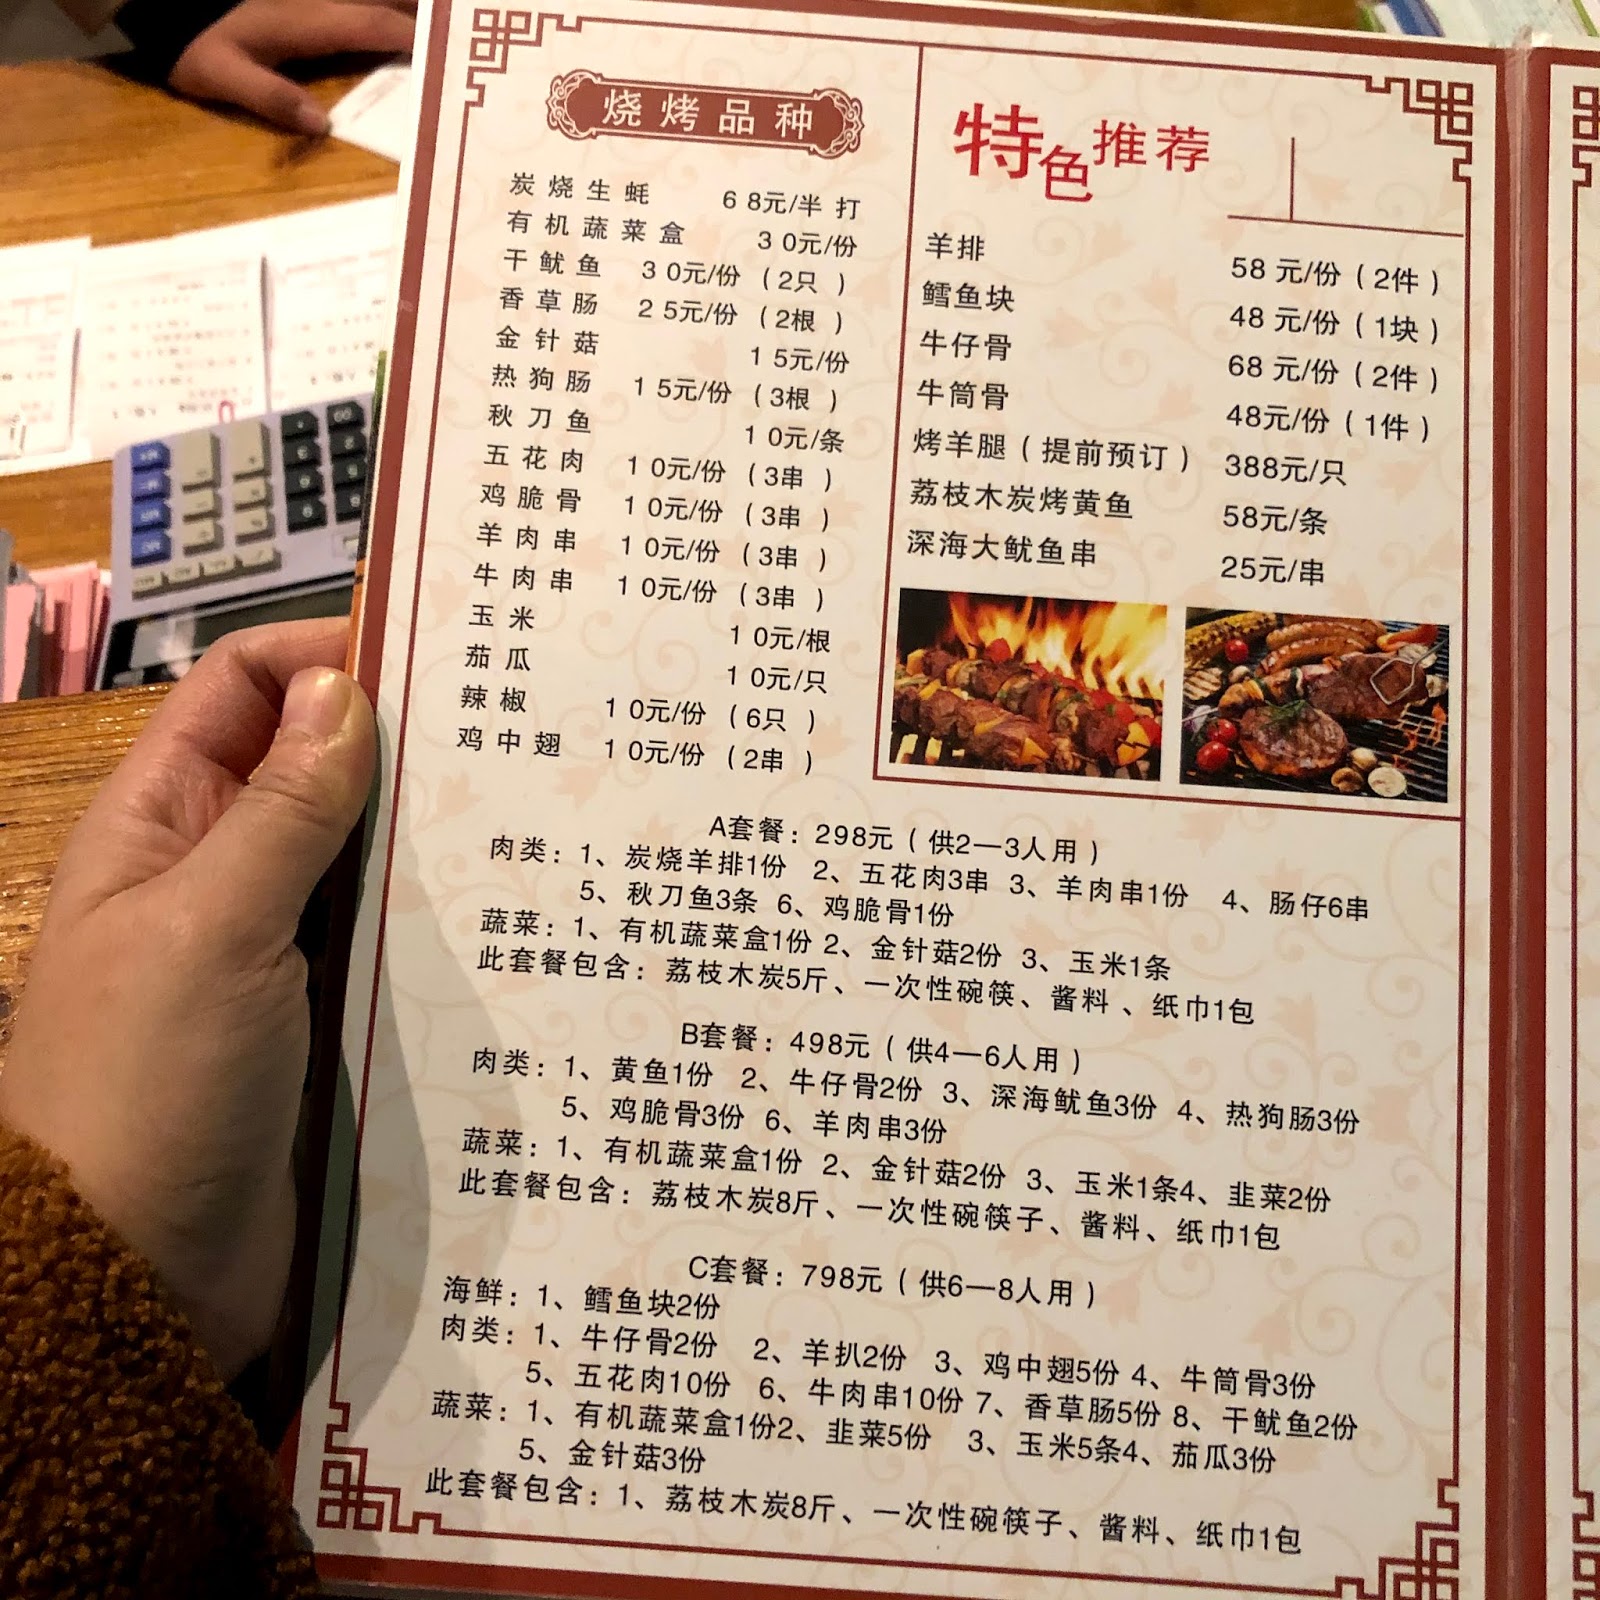 烧烤品种
炭烧生蚝 68元/半打
有机蔬菜盒 30元/份
干鱿鱼 30元/份（2只）
香草肠 25元/份（2根）
金针菇 15元/份
热狗肠 15元/份（3根）
秋刀鱼 10元/条
五花肉 10元/份（3串）
鸡脆骨 10元/份（3串）
羊肉串 10元/份（3串）
牛肉串 10元/份（3串）
玉米 10元/根
茄瓜 10元/只
辣椒 10元/份（6只）
鸡中翅 10元/份（2串）
特色推荐
羊排 58元/份（2件）
鳕鱼块 48元/份（1块）
牛仔骨 68元/份（2件）
牛筒骨 48元/份（1件）
烤羊腿（提前预订） 388元/只
荔枝木炭烤黄鱼 58元/条
深海大鱿鱼串 25元/串
A套餐：298元（供2—3人用）
肉类：1、炭烧羊排1份 2、五花肉3串 3、羊肉串1份 4、肠仔6串
5、秋刀鱼3条 6、鸡脆骨1份
蔬菜：1、有机蔬菜盒1份 2、金针菇2份 3、玉米1条
此套餐包含：荔枝木炭5斤、一次性碗筷、酱料、纸巾1包
B套餐：498元（供4—6人用）
肉类：1、黄鱼1份 2、牛仔骨2份 3、深海鱿鱼3份 4、热狗肠3份
5、鸡脆骨3份 6、羊肉串3份
蔬菜：1、有机蔬菜盒1份 2、金针菇2份 3、玉米1条4、韭菜2份
此套餐包含：荔枝木炭8斤、一次性碗筷子、酱料、纸巾1包
C套餐：798元（供6—8人用）
海鲜：1、鳕鱼块2份
肉类：1、牛仔骨2份 2、羊扒2份 3、鸡中翅5份 4、牛筒骨3份
5、五花肉10份 6、牛肉串10份 7、香草肠5份 8、干鱿鱼2份
蔬菜：1、有机蔬菜盒1份2、韭菜5份 3、玉米5条4、茄瓜3份
5、金针菇3份
此套餐包含：1、荔枝木炭8斤、一次性碗筷子、酱料、纸巾1包